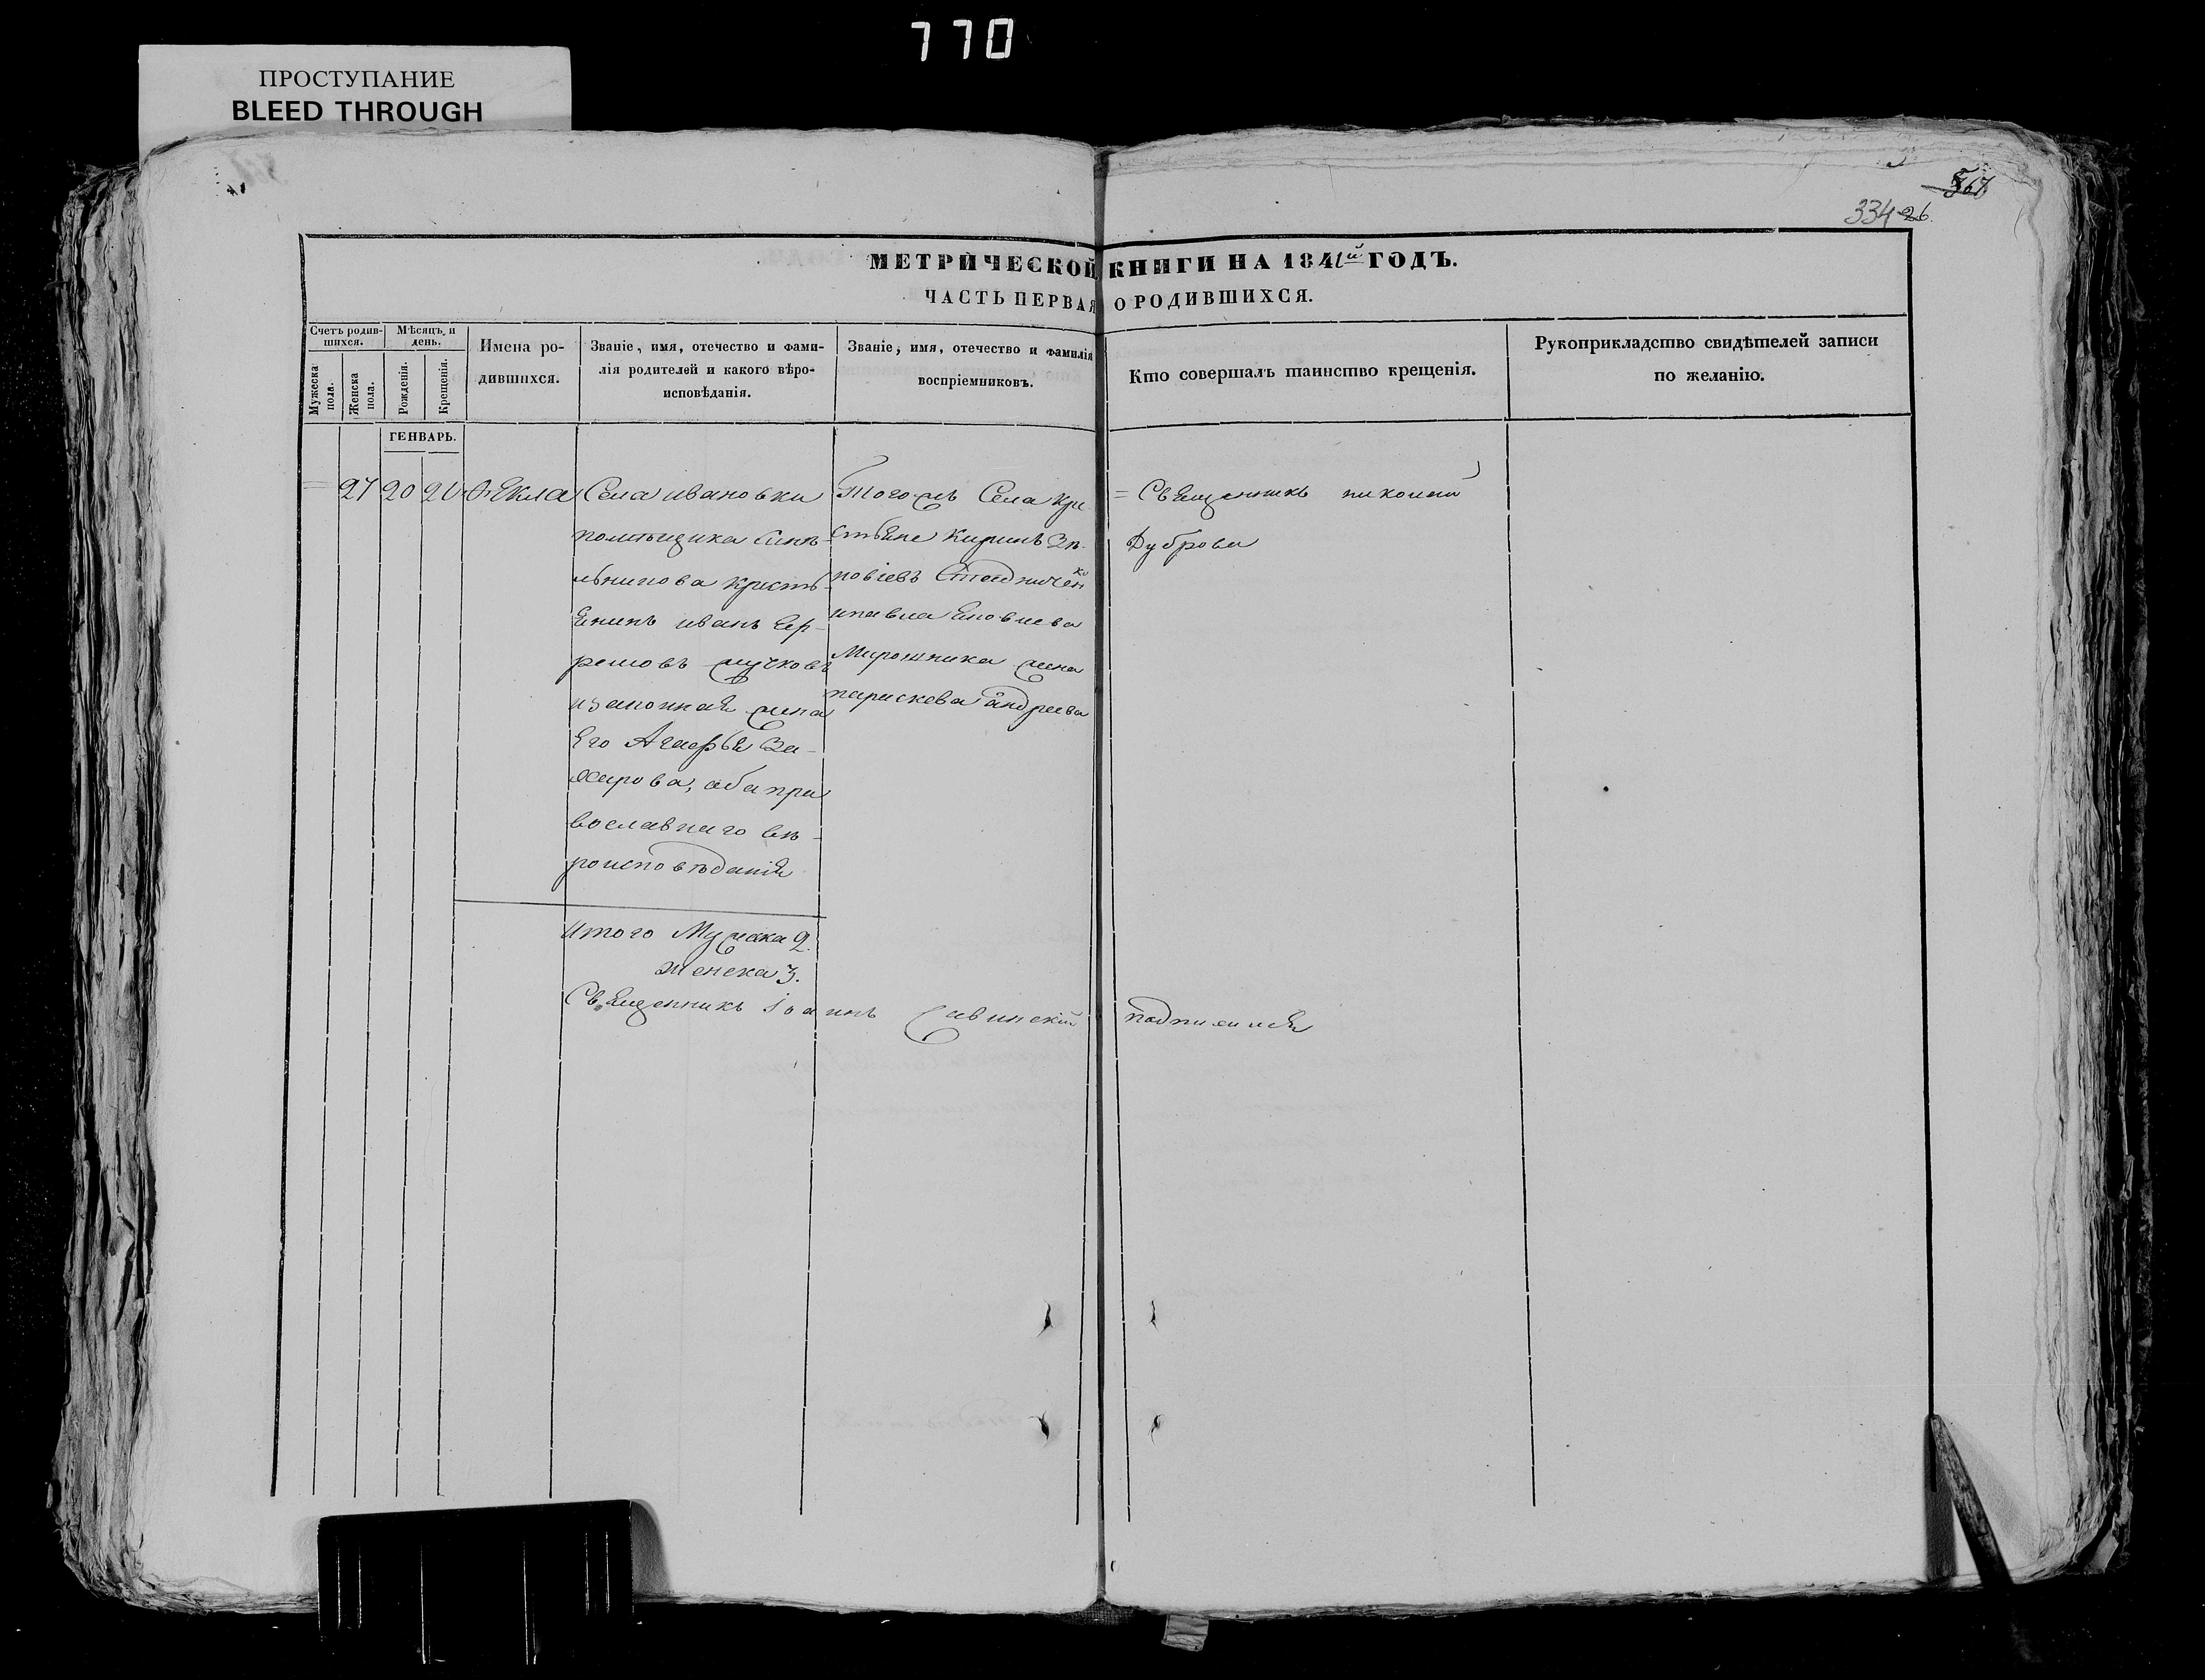 770
ПРОСТУПАНИЕ
BLEED THROUGH
567
334 26.
МЕТРИЧЕСКОЙ КНИГИ НА 1841й ГОДЪ.
ЧАСТЬ ПЕРВАЯ О РОДИВШИХСЯ.
Счетъ родив-
шихся.
Мужеска
пола.
Женска
пола.
Мѣсяцъ и
день.
Рожденія.
Крещенія.
Имена ро-
дившихся.
Званіе, имя, отечество и фами-
лія родителей и какого вѣро-
исповѣданія.
Званіе, имя, отечество и фамилія
воспріемниковъ.
Кто совершалъ таинство крещенія.
Рукоприкладство свидѣтелей записи
по желанію.
ГЕНВАРЬ.
27 20 Ѳекла
Села ивановки
помѣщика
крестъ-
Енинъ иванъ
законная жена
Его Агафья За-
харова, оба пра
вославнаго вѣ-
роисповѣданія
Того жъ Села кре
стьяне
Стедниченко
ипавла
Мирошника жена
параскева андреева
= Священникъ николай
Дуброва
Итого Мужеска 2.
женска 3.
Священникъ іоаннъ Савинскій подписался